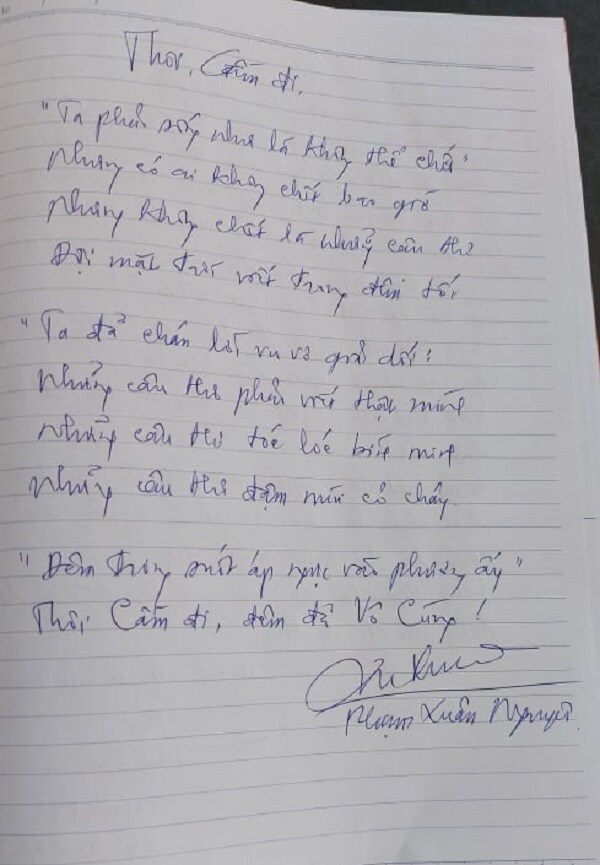 Thôi, Cầm đi,
"Ta phải sống như là không thể chết"
Nhưng có ai không chết bao giờ
Nhưng không chết là những câu thơ
Đợi mặt trời viết trong đêm tối,
"Ta đã chán lời vu vơ giả dối"
Những câu thơ phải viết thật mình
Những câu thơ toé loé bình minh
Những câu thơ đậm mùi cỏ cháy.
"Đêm trong suốt áp ngực vào phương ấy"
Thôi, Cầm đi, đêm đã Vô Cùng!
Phạm Xuân Nguyên